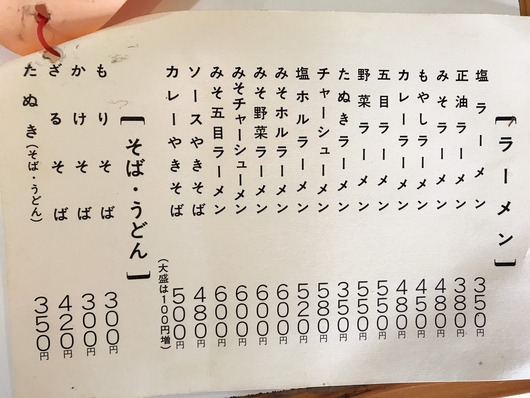 [ラーメン]
塩ラーメン 350円
正油ラーメン 380円
みそラーメン 450円
もやしラーメン 450円
カレーラーメン 480円
五目ラーメン 550円
野菜ラーメン 550円
たぬきラーメン 350円
チャーシューメン 580円
塩ホルラーメン 520円
みそホルラーメン 600円
みそ野菜ラーメン 600円
みそチャーシューメン 600円
みそ五目ラーメン 600円
ソースやきそば 480円
カレーやきそば 500円
(大盛は100円増)
[そば・うどん]
もりそば 300円
かけそば 300円
ざるそば 420円
たぬき(そば・うどん) 350円